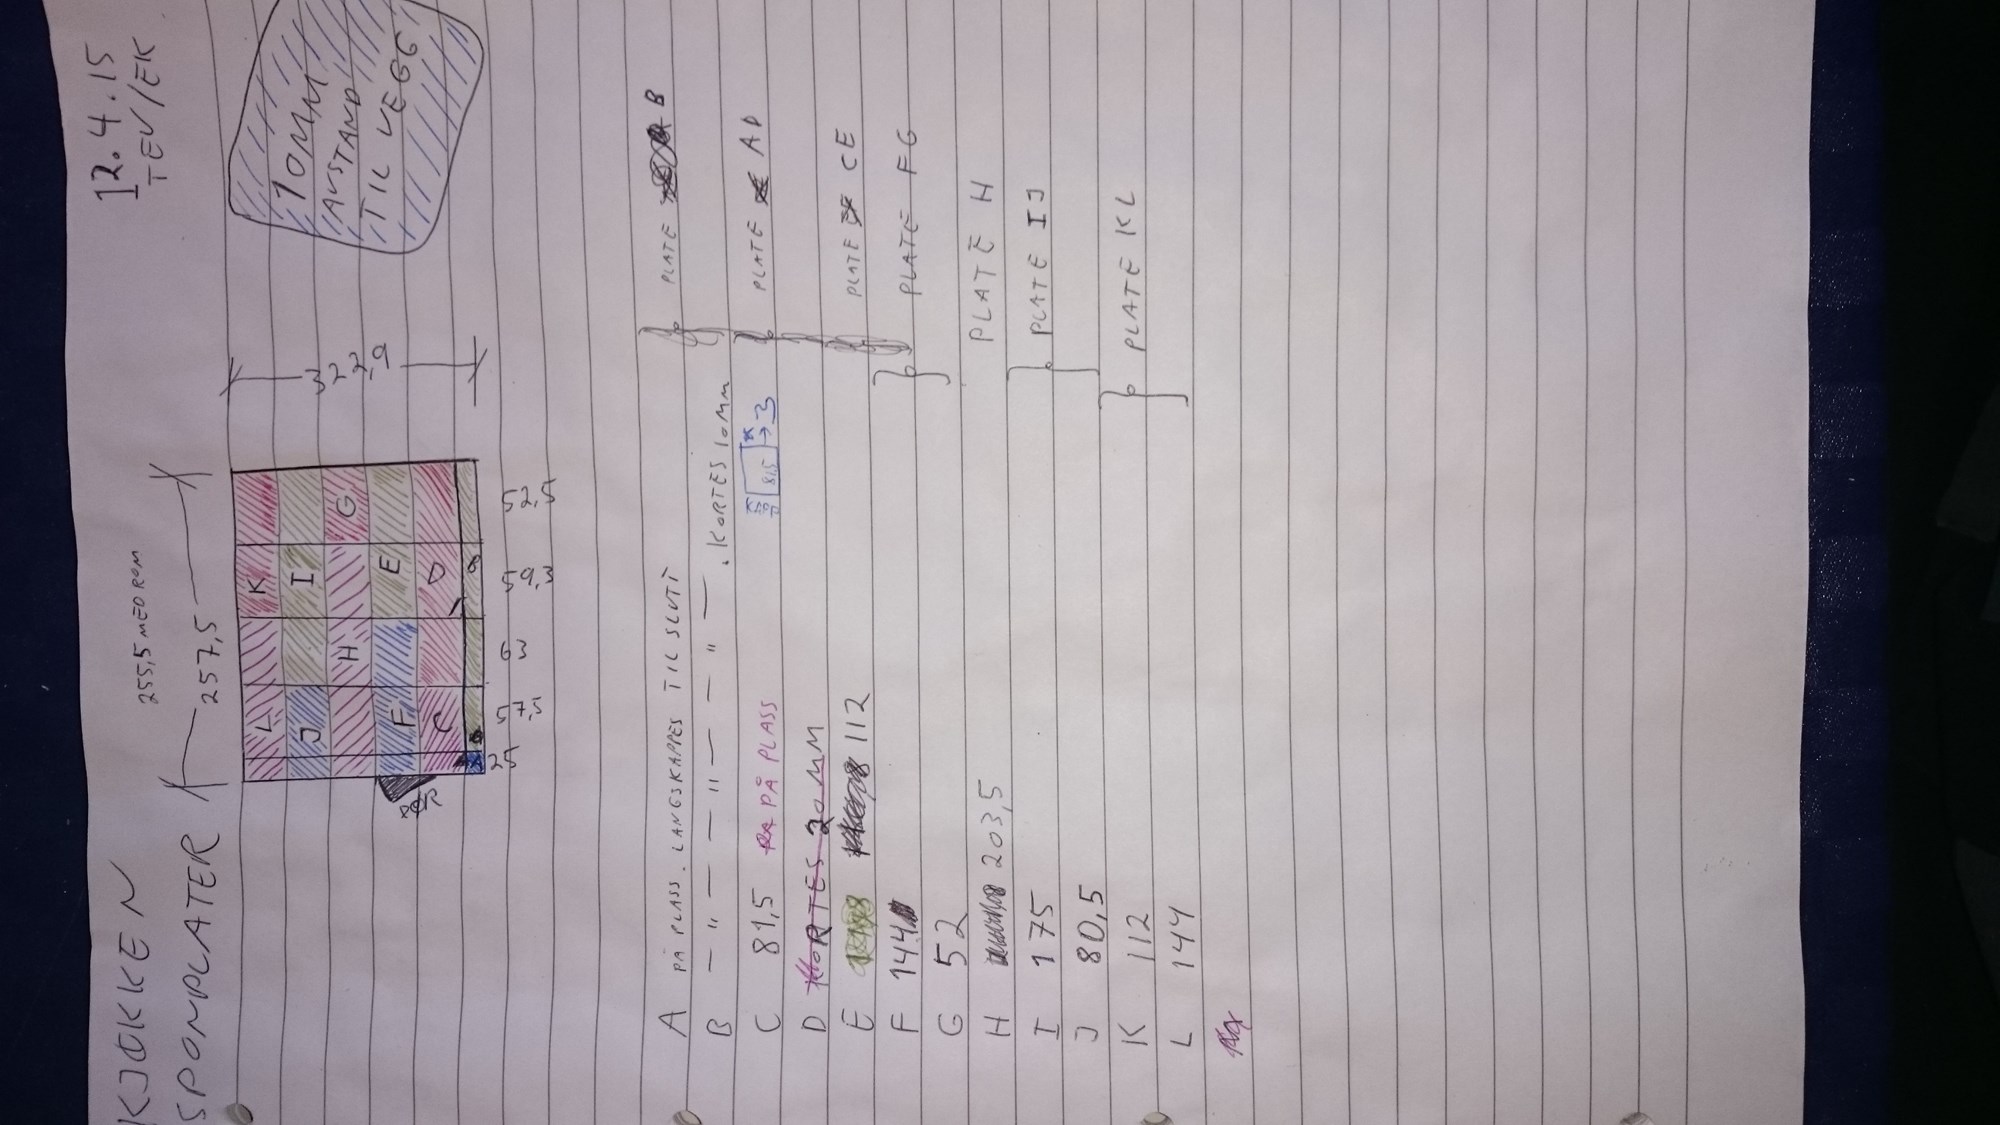 KJØKKEN
SPONPLATER
12.4.15
TEV/EK
255,5 MED ROM
257,5
322,9
10MM
AVSTAND
TIL VEGG
K
L
I
J
G
H
E
F
D
C
B
A
DØR
25
57,5
63
59,3
52,5
A PÅ PLASS. LANGSKAPPES TIL SLUTT
PLATE B
B — " — — " — — " — . KORTES 10MM
C 81,5 PÅ PLASS
81,5 → 3
PLATE AD
D KORTES 20MM
E 112
PLATE CE
F 144
G 52
PLATE FG
H 203,5
PLATE H
I 175
J 80,5
PLATE IJ
K 112
L 144
PLATE KL